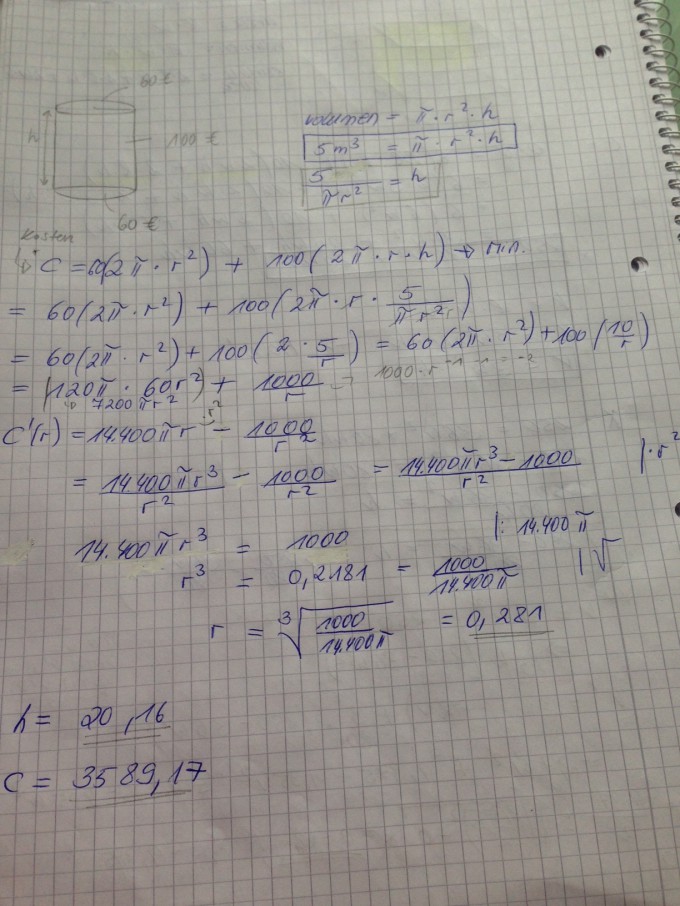 60 €
h
100 €
60 €
Volumen = π · r² · h
5m³ = π · r² · h
5/πr² = h
Kosten
C = 60(2π · r²) + 100(2π · r · h) → min.
= 60(2π · r²) + 100(2π · r · 5/πr²)
= 60(2π · r²) + 100(2 · 5/r) = 60(2π · r²) + 100(10/r)
= (120π · 60r²) + 1000/r 1000 · r⁻¹ -1 = -2
7200πr²
C'(r) = 14.400πr - 1000/r²
· r²
= 14.400πr³/r² - 1000/r² = 14.400πr³ - 1000/r² | · r²
14.400πr³ = 1000 |: 14.400π
r³ = 0,2181 = 1000/14.400π | √
r = ³√1000/14.400π = 0,281
h = 20,16
C = 3589,17